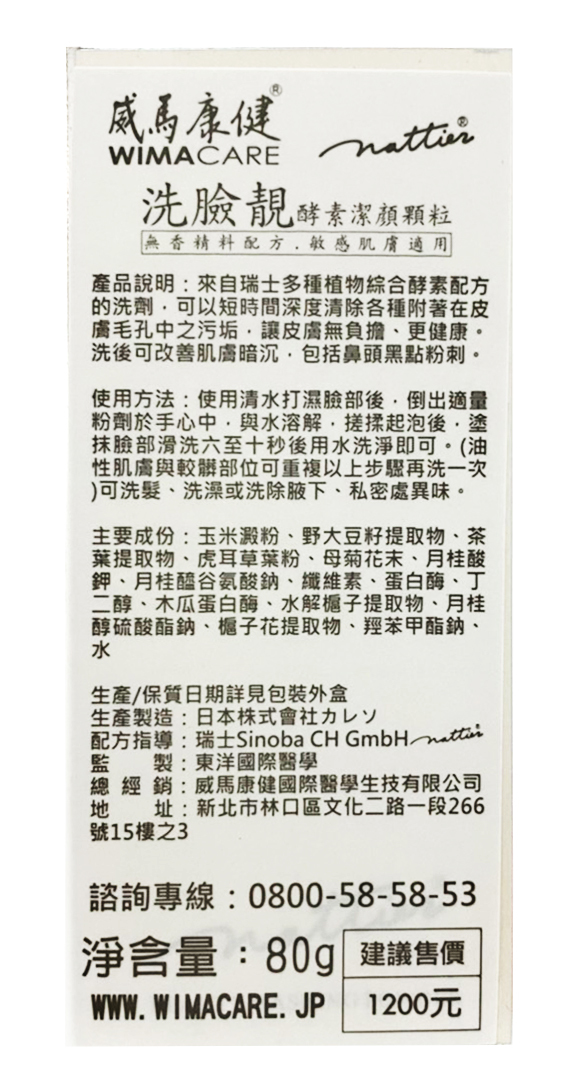 威馬康健®
WIMACARE
nattier®
洗臉靚酵素潔顏顆粒
無香精料配方.敏感肌膚適用
產品說明：來自瑞士多種植物綜合酵素配方
的洗劑，可以短時間深度清除各種附著在皮
膚毛孔中之污垢，讓皮膚無負擔、更健康。
洗後可改善肌膚暗沉，包括鼻頭黑點粉刺。
使用方法：使用清水打濕臉部後，倒出適量
粉劑於手心中，與水溶解，搓揉起泡後，塗
抹臉部滑洗六至十秒後用水洗淨即可。(油
性肌膚與較髒部位可重複以上步驟再洗一次
)可洗髮、洗澡或洗除腋下、私密處異味。
主要成份：玉米澱粉、野大豆籽提取物、茶
葉提取物、虎耳草葉粉、母菊花末、月桂酸
鉀、月桂醯谷氨酸鈉、纖維素、蛋白酶、丁
二醇、木瓜蛋白酶、水解梔子提取物、月桂
醇硫酸酯鈉、梔子花提取物、羥苯甲酯鈉、
水
生產/保質日期詳見包裝外盒
生產製造：日本株式會社カレソ
配方指導：瑞士Sinoba CH GmbH nattier®
監　　製：東洋國際醫學
總 經 銷：威馬康健國際醫學生技有限公司
地　　址：新北市林口區文化二路一段266
號15樓之3
諮詢專線：0800-58-58-53
淨含量：80g
建議售價
WWW.WIMACARE.JP
1200元